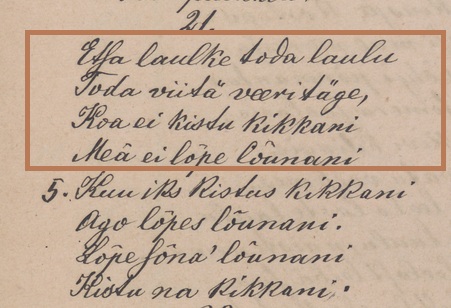 21.
Etſa laulke toda laulu
Toda viitä veeritäge,
Koa ei kistu kikkani
Meä ei lõpe lõunani
5. Kuu iks kistus kikkani
Ago lõpes lõunani.
Lõpe ſõna' lõunani
Kistu na kikkani.